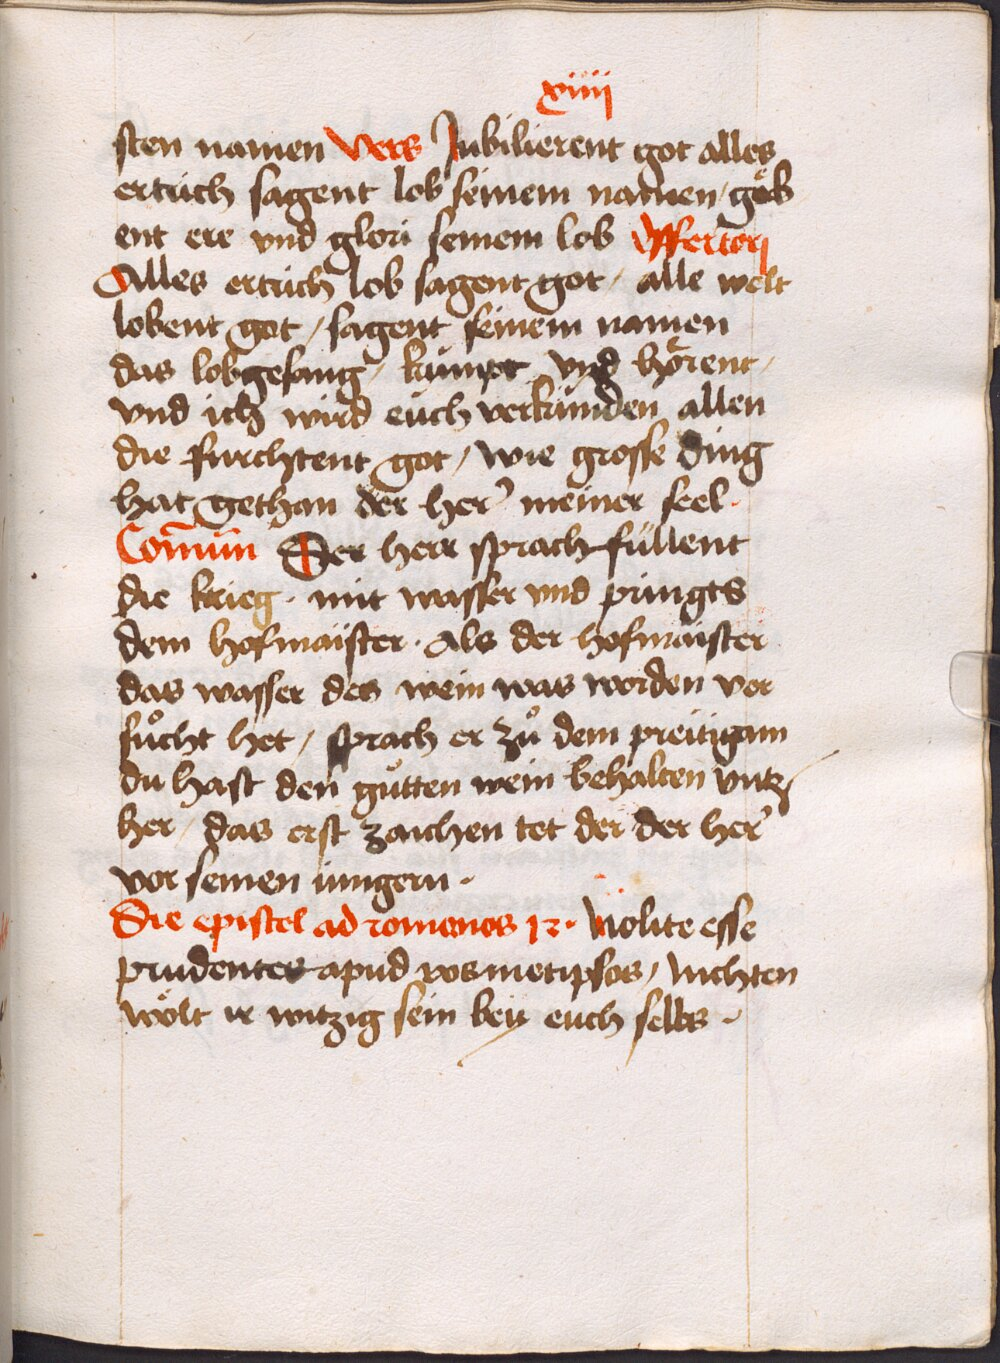 xiiii
sten namen Vers Jubilierent got alles
ertrich sagent lob seinem namen / gäb
ent ere vnd glori seinem lob Offertorj
Alles ertrich lob sagent got / alle welt
lobent got / sagent seinem namen
das lobgesang / kumpt vnd hörent /
vnd ich wird euch verkunden allen
die furchtent got / wie grosse ding
hat gethan der her meiner seel ·
Comun Der herr sprach fullent
die krieg · mit wasser vnd pringts
dem hofmaister · Als der hofmaister
das wasser des wein was worden vor
sůcht het / sprach er zů dem preitigam
du hast den gůtten wein behalten vntz
her / das erst zaichen tet der der her
vor seinen iungern ·
Die epistel ad romanos 12 · Nolite esse
prudentes apud vosmetipsos / Nichten
wölt ir witzig sein bey euch selbs ·